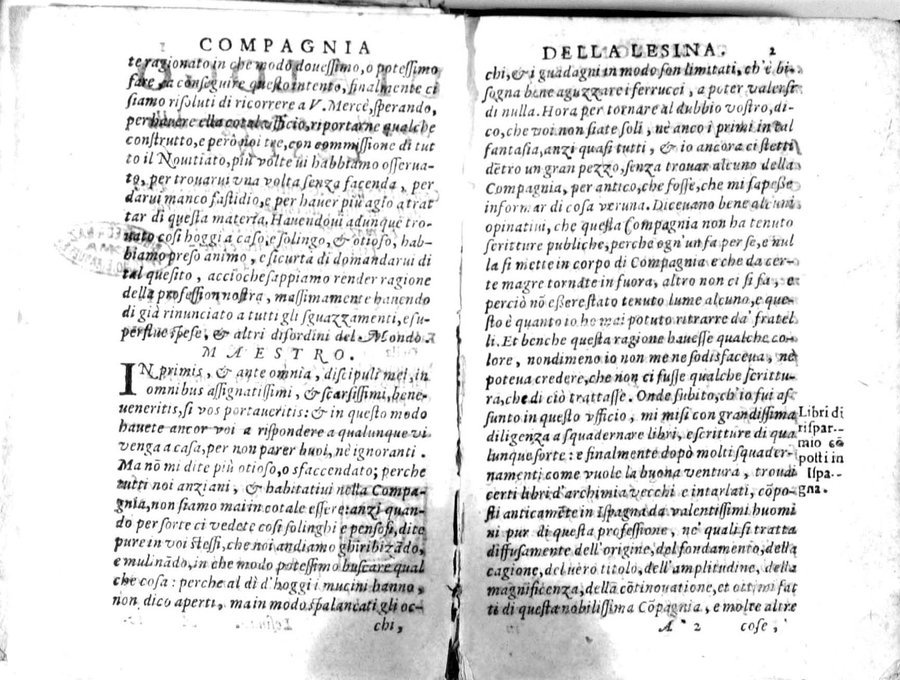 COMPAGNIA
te ragionato in che modo douessimo, o potessimo
fare, a conseguire questo intento, finalmente ci
siamo risoluti di ricorrere a V. Merce, sperando,
per hauere ella cotal vfficio, riportarne qualche
construtto, e però noi tre, con commissione di tut
to il Nouitiato, più volte vi habbiamo osserua-
to, per trouarui vna volta senza facenda, per
darui manco fastidio, e per hauer più agio a trat
tar di questa materia. Hauendoui adunque tro-
uato così hoggi a caso, e solingo, & otioso, hab-
biamo preso animo, e sicurtà di domandarui di
tal quesito, accioche sappiamo render ragione
della profession nostra, massimamente hauendo
di già rinunciato a tutti gli sguazzamenti, e su-
perflue spese, & altri disordini del Mondo.
MAESTRO.
IN primis, & ante omnia, discipuli mei, in
omnibus assignatissimi, & scarsissimi, bene-
ueneritis, si vos portaueritis: & in questo modo
hauete ancor voi a rispondere a qualunque vi
venga a casa, per non parer buoi, nè ignoranti.
Ma nō mi dite più otioso, o sfaccendato; perche
tutti noi anziani, & habitatiui nella Compa-
gnia, non siamo mai in cotale essere: anzi quan-
do per sorte ci vedete così solinghi e pensosi, dite
pure in voi stessi, che noi andiamo ghiribizādo,
e mulinādo, in che modo potessimo buscare qual
che cosa: perche al dì d'hoggi i mucini hanno,
non dico aperti, ma in modo spalancati gli oc-
chi,
DELLA LESINA. 2
chi, & i guadagni in modo son limitati, ch'è bi-
sogna bene aguzzare i ferrucci, a poter valersi
di nulla. Hora per tornare al dubbio vostro, di-
co, che voi non siate soli, nè anco i primi in tal
fantasia, anzi quasi tutti, & io ancora ci stetti
dētro un gran pezzo, senza trouar alcuno della
Compagnia, per antico, che fosse, che mi sapesse
informar di cosa veruna. Diceuano bene alcuni
opinatiui, che questa Compagnia non ha tenuto
scritture publiche, perche ogn'un fa per se, e nul
la si mette in corpo di Compagnia e che da cer-
te magre tornate in fuora, altro non ci si fa, e
perciò nō essere stato tenuto lume alcuno, e que-
sto è quanto io ho mai potuto ritrarre da' fratel
li. Et benche questa ragione hauesse qualche co-
lore, nondimeno io non me ne sodisfaceua, nè
poteua credere, che non ci fusse qualche scrittu-
ra, che di ciò trattasse. Onde subito, ch'io fui as
sunto in questo vfficio, mi misi con grandissima
diligenza a squadernare libri, e scritture di qua
lunque sorte: e finalmente dopò molti squader-
namenti come vuole la buona ventura, trouai
certi libri d'archimia vecchi e intarlati, cōpo-
sti anticamēte in Ispagna da valentissimi huomi
ni pur di questa professione, ne' quali si tratta
diffusamente dell'origine, del fondamento, della
cagione, del uero titolo, dell'amplitudine, della
magnificenza, della cōtinouatione, et ottimi fat
ti di questa nobilissima Cōpagnia, e molte altre
A 2 cose,
Libri di
rispar-
mio cō
posti in
Ispa-
gna.